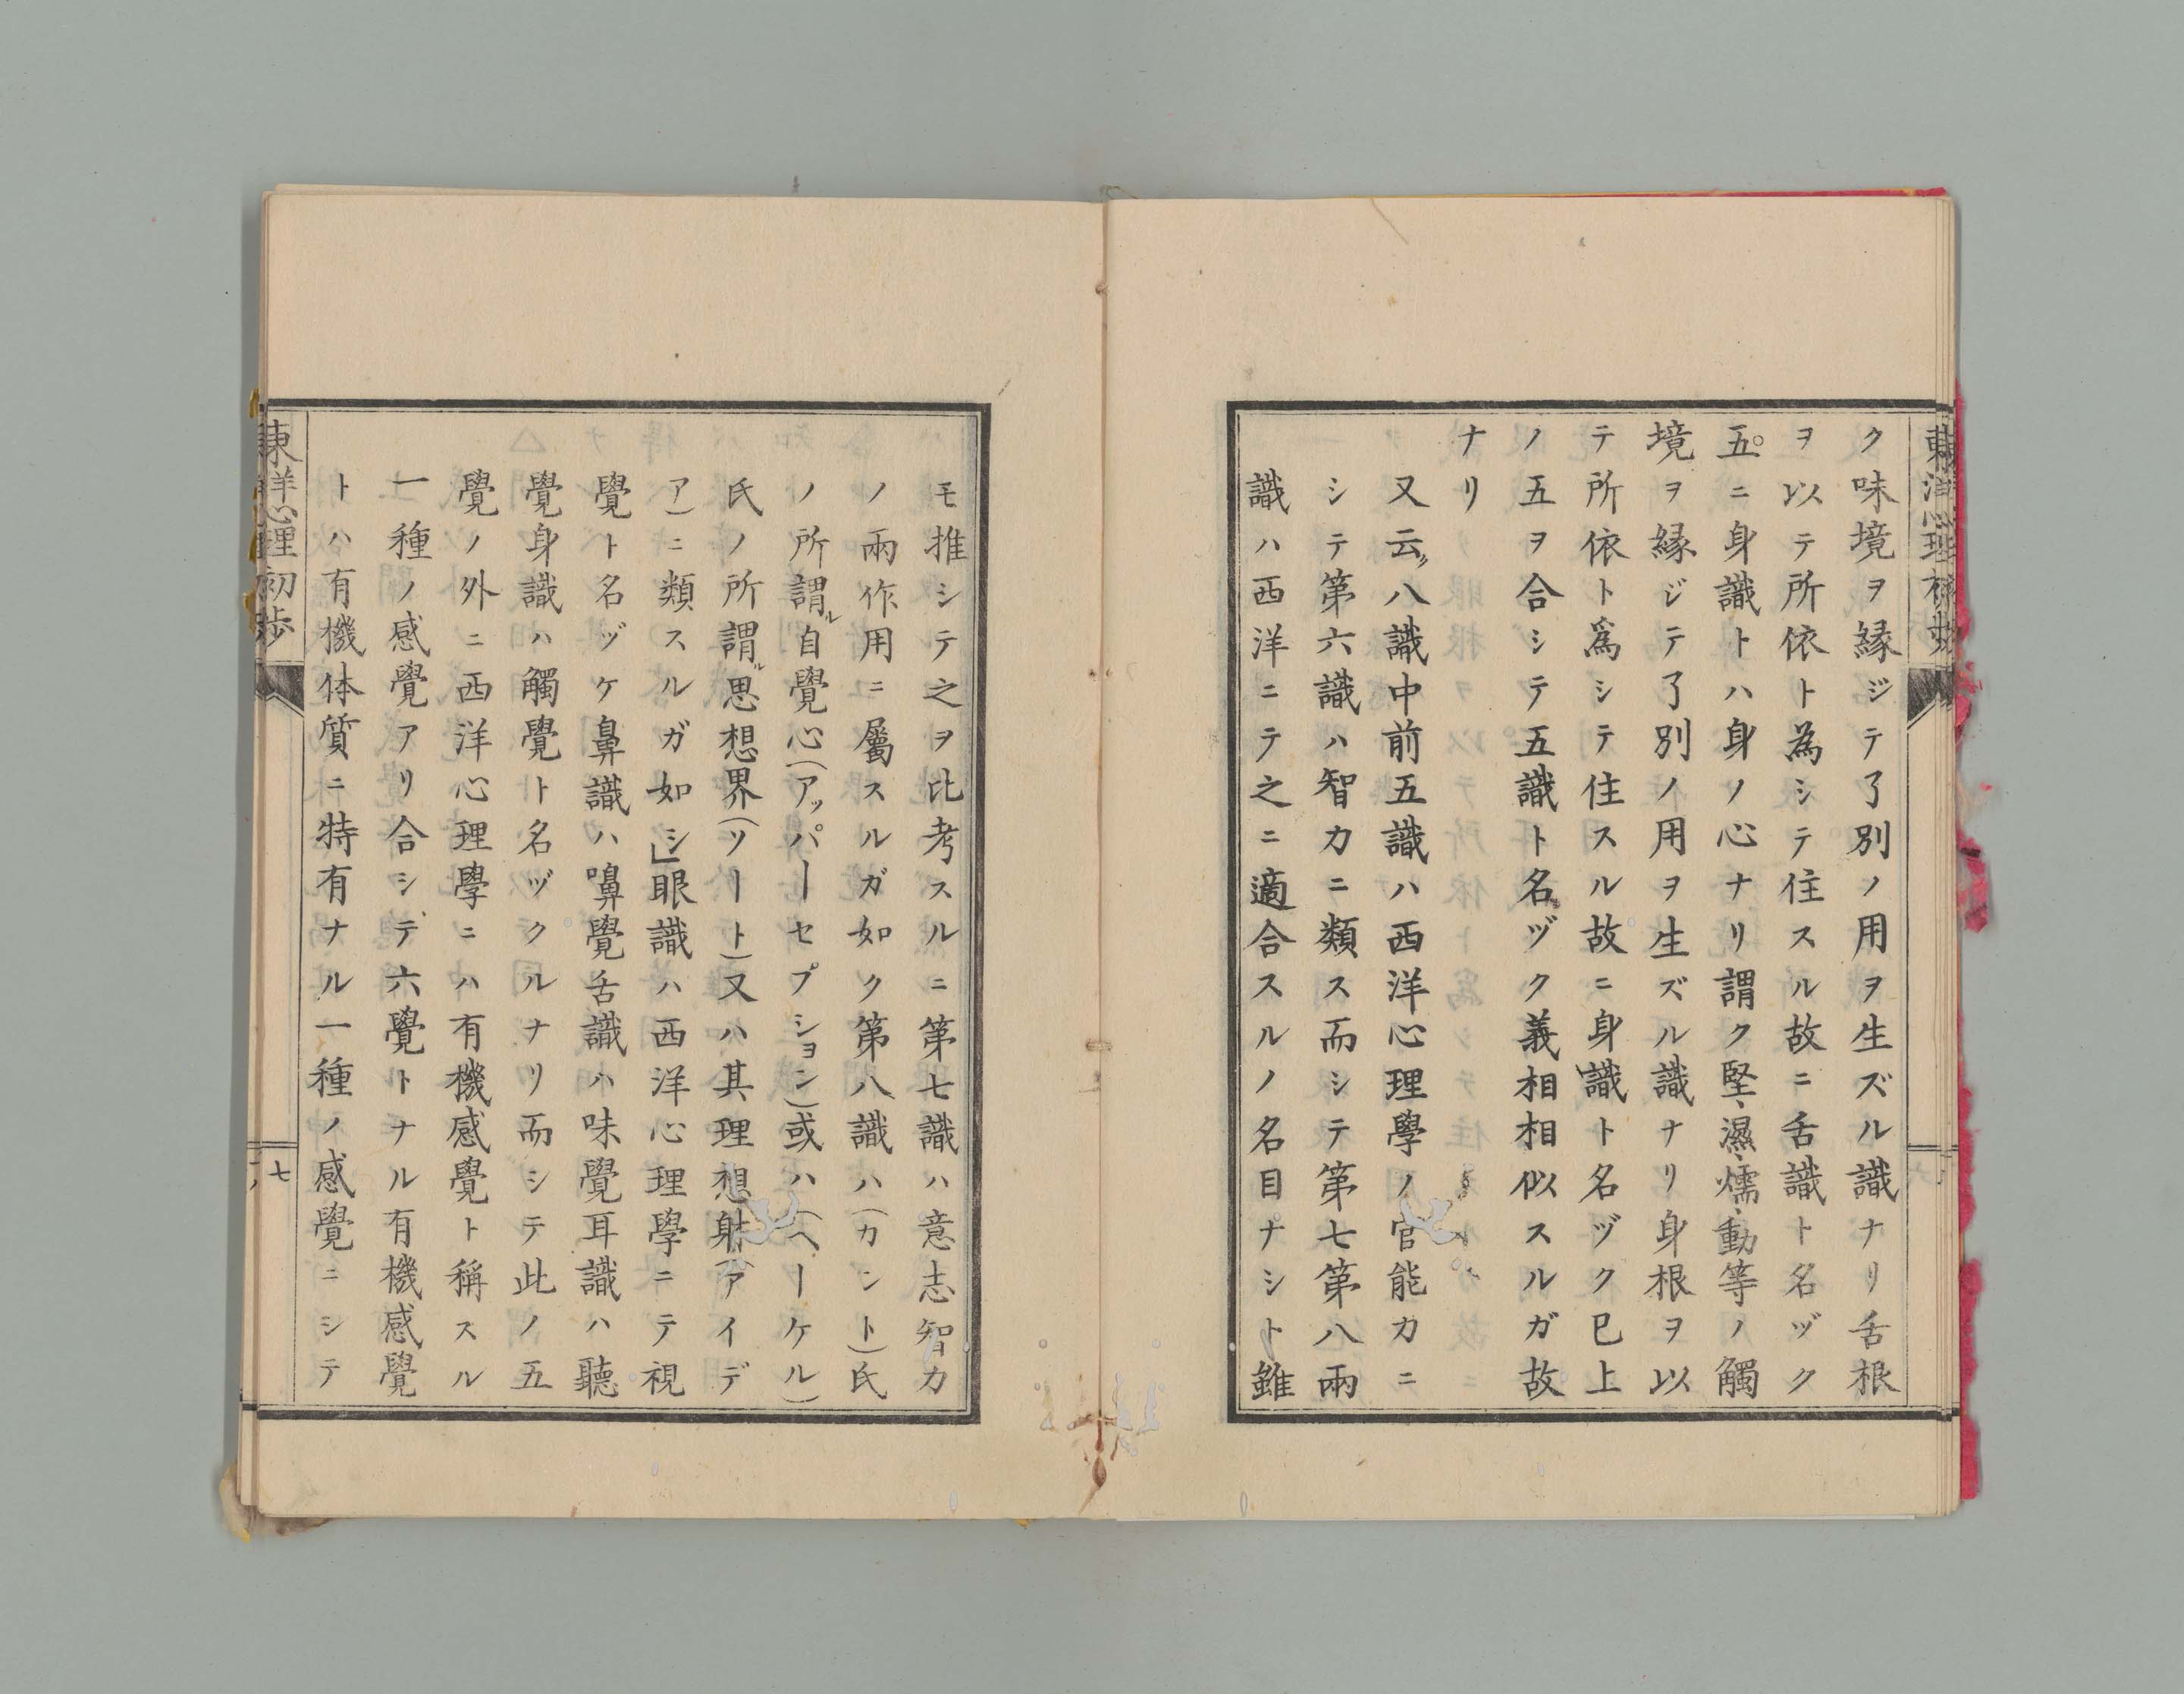 ク味境ヲ縁ジテ了別ノ用ヲ生ズル識ナリ舌根
ヲ以テ所依ト為シテ住スル故ニ舌識ト名ヅク
五ニ身識トハ身ノ心ナリ謂ク堅、濕、煖、動等ノ觸
境ヲ縁ジテ了別ノ用ヲ生ズル識ナリ身根ヲ以
テ所依ト爲シテ住スル故ニ身識ト名ヅク已上
ノ五ヲ合シテ五識ト名ヅク義相相似スルガ故
ナリ
又云ク八識中前五識ハ西洋心理學ノ官能力ニ
シテ第六識ハ智力ニ類ス而シテ第七第八兩
識ハ西洋ニテ之ニ適合スルノ名目ナシト雖
モ推シテ之ヲ比考スルニ第七識ハ意志智力
ノ兩作用ニ屬スルガ如ク第八識ハ(カント)氏
ノ所謂ル自覺心(アッパーセプション)或ハ(ヘーケル)
氏ノ所謂ル思想界(ソート)又ハ其理想躰(アイデ
ア)ニ類スルガ如シ」眼識ハ西洋心理學ニテ視
覺ト名ヅケ鼻識ハ嗅覺舌識ハ味覺耳識ハ聽
覺身識ハ觸覺ト名ヅクルナリ而シテ此ノ五
覺ノ外ニ西洋心理學ニハ有機感覺ト稱スル
一種ノ感覺アリ合シテ六覺トナル有機感覺
トハ有機体質ニ特有ナル一種ノ感覺ニシテ
東洋心理初歩
七